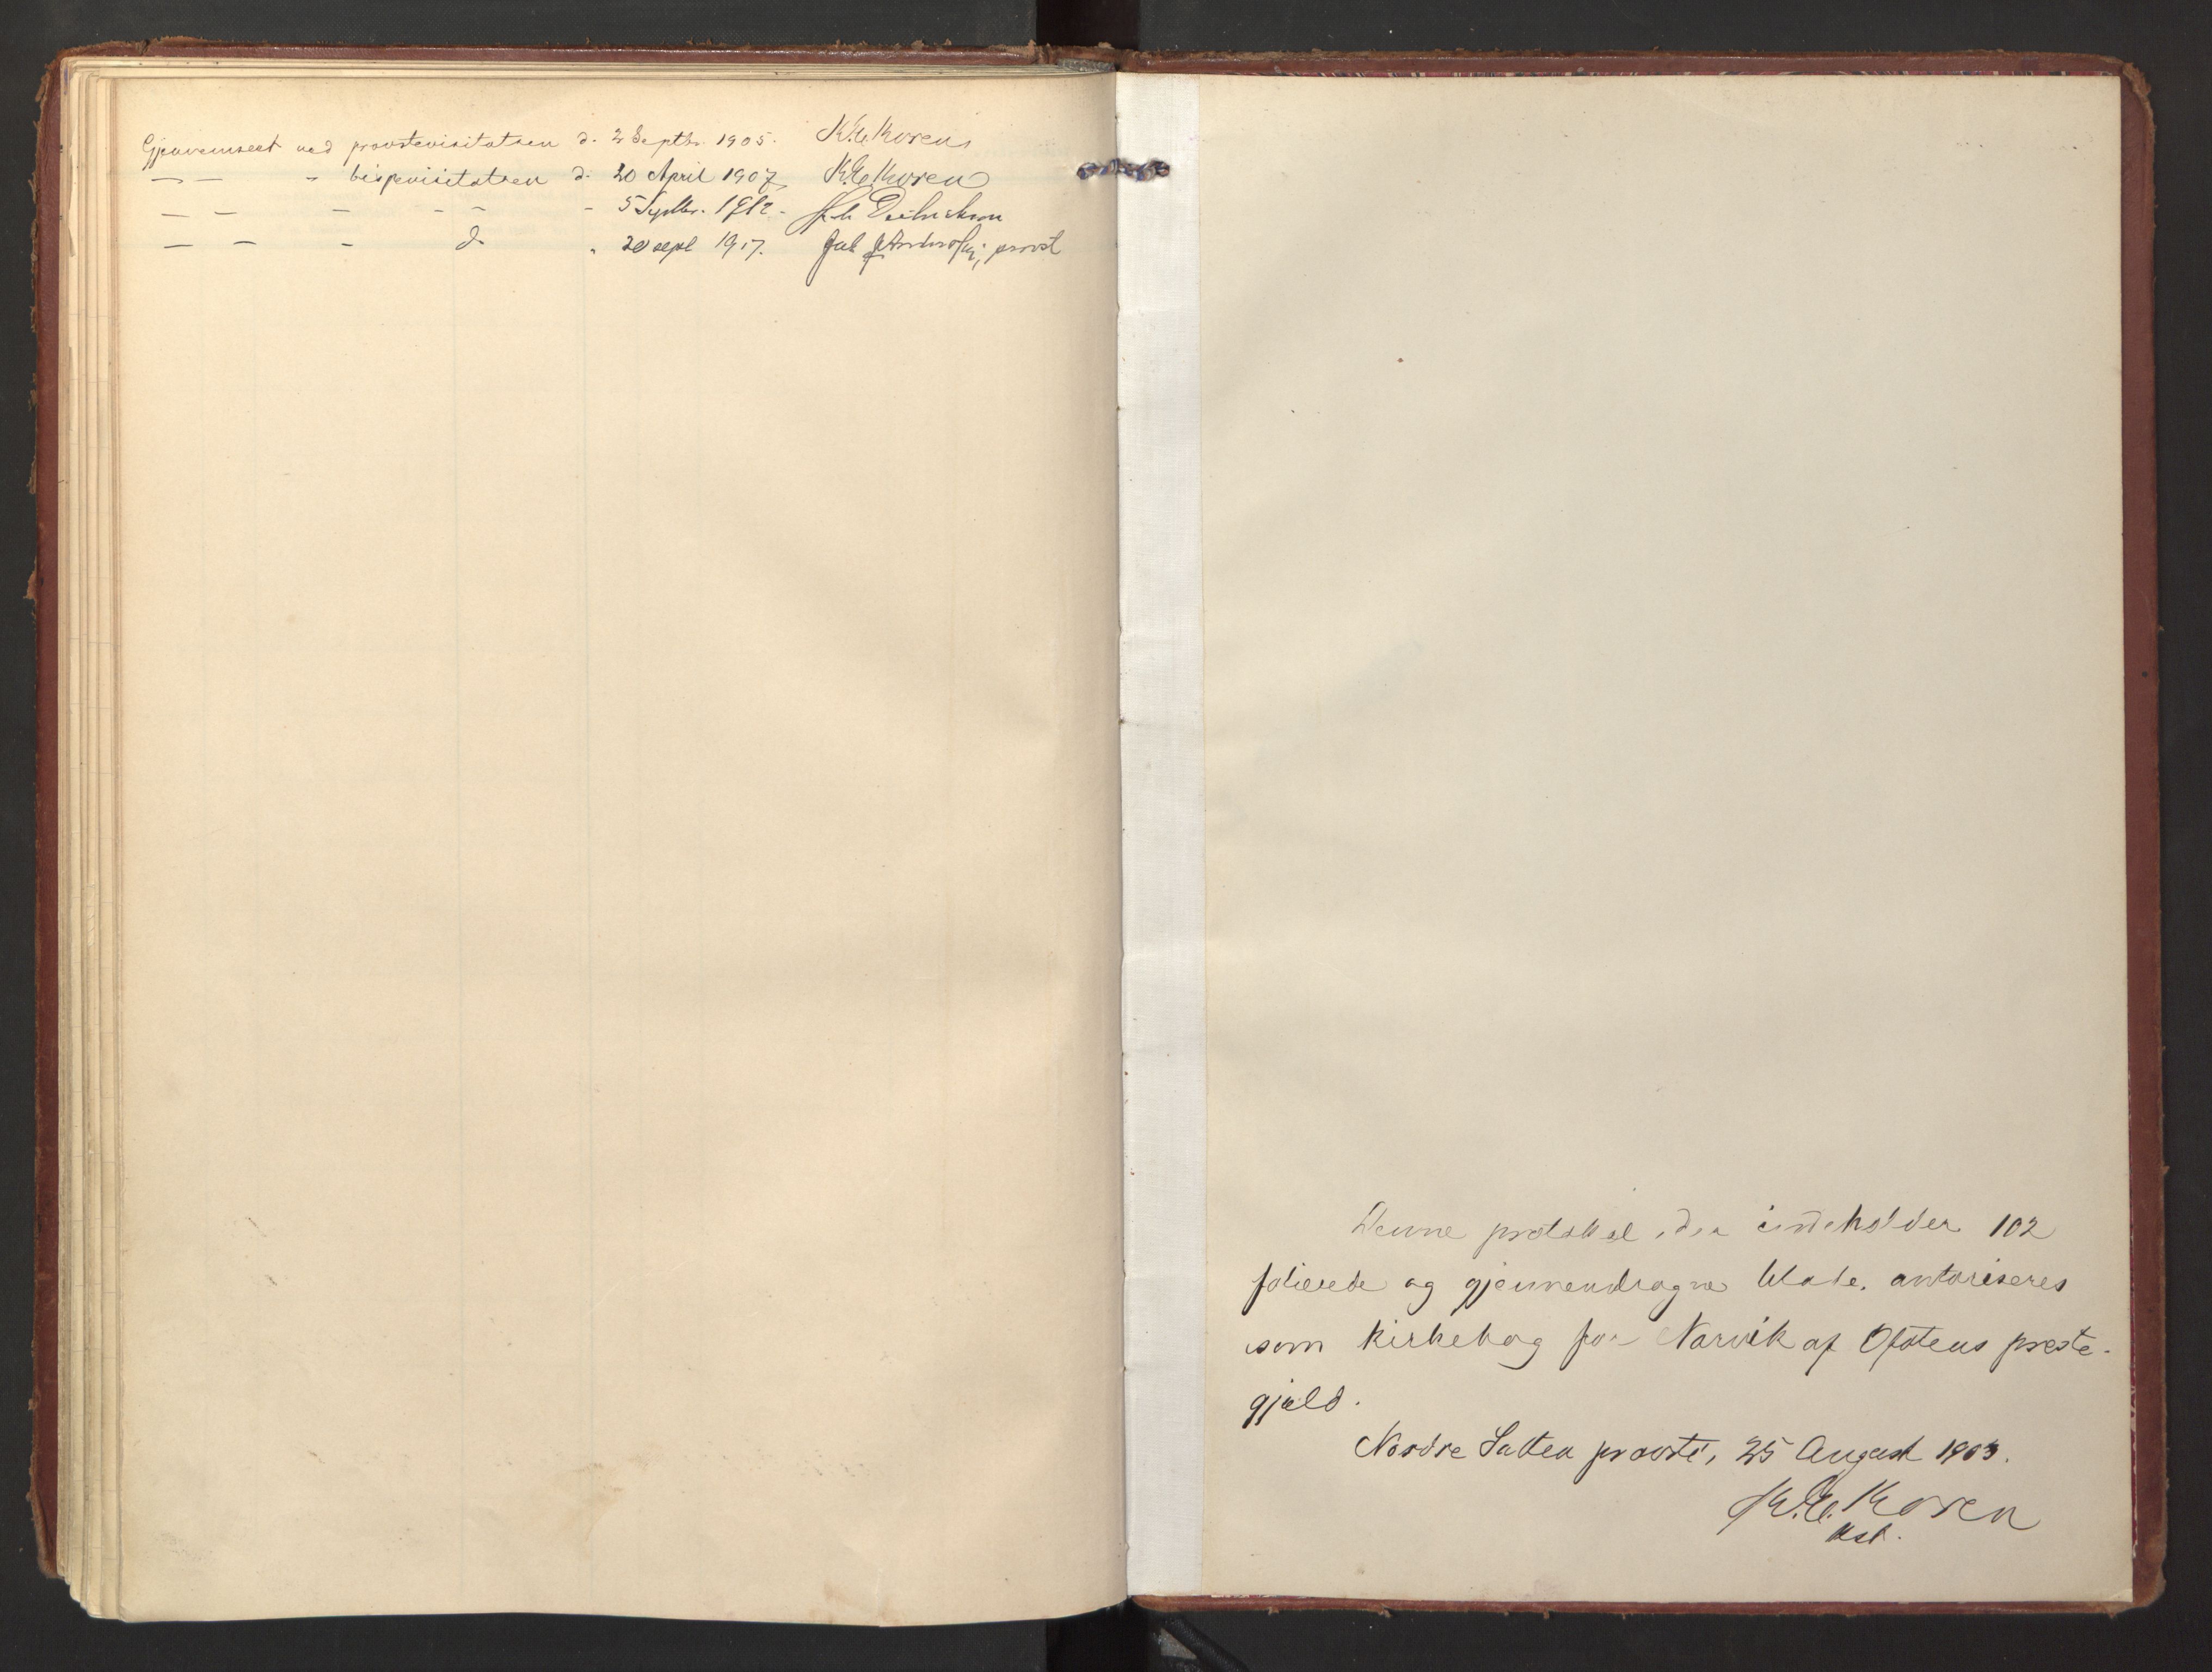 Gjennemseet ved provstevisitatsen d. 2 Septbr. 1905. K.E. Koren
— — " bispevisitatsen d. 20 April 1907, K.E. Koren
— — — - - - 5 Septbr. 1912.
— — — do " 20 sept 1917. provst
Denne protokol, der indeholder 102
folierede og gjennemdragne blade, autoriseres
som kirkebog for Narvik af Ofotens preste-
gjeld.
Nordre Salten provsti, 25 August 1903.
K.E. Koren
kst.